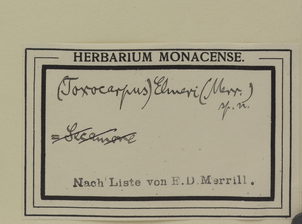 HERBARIUM MONACENSE.
(Toxocarpus) Elmeri (Merr.)
sp. n.
= Secamone
Nach Liste von E.D. Merrill.